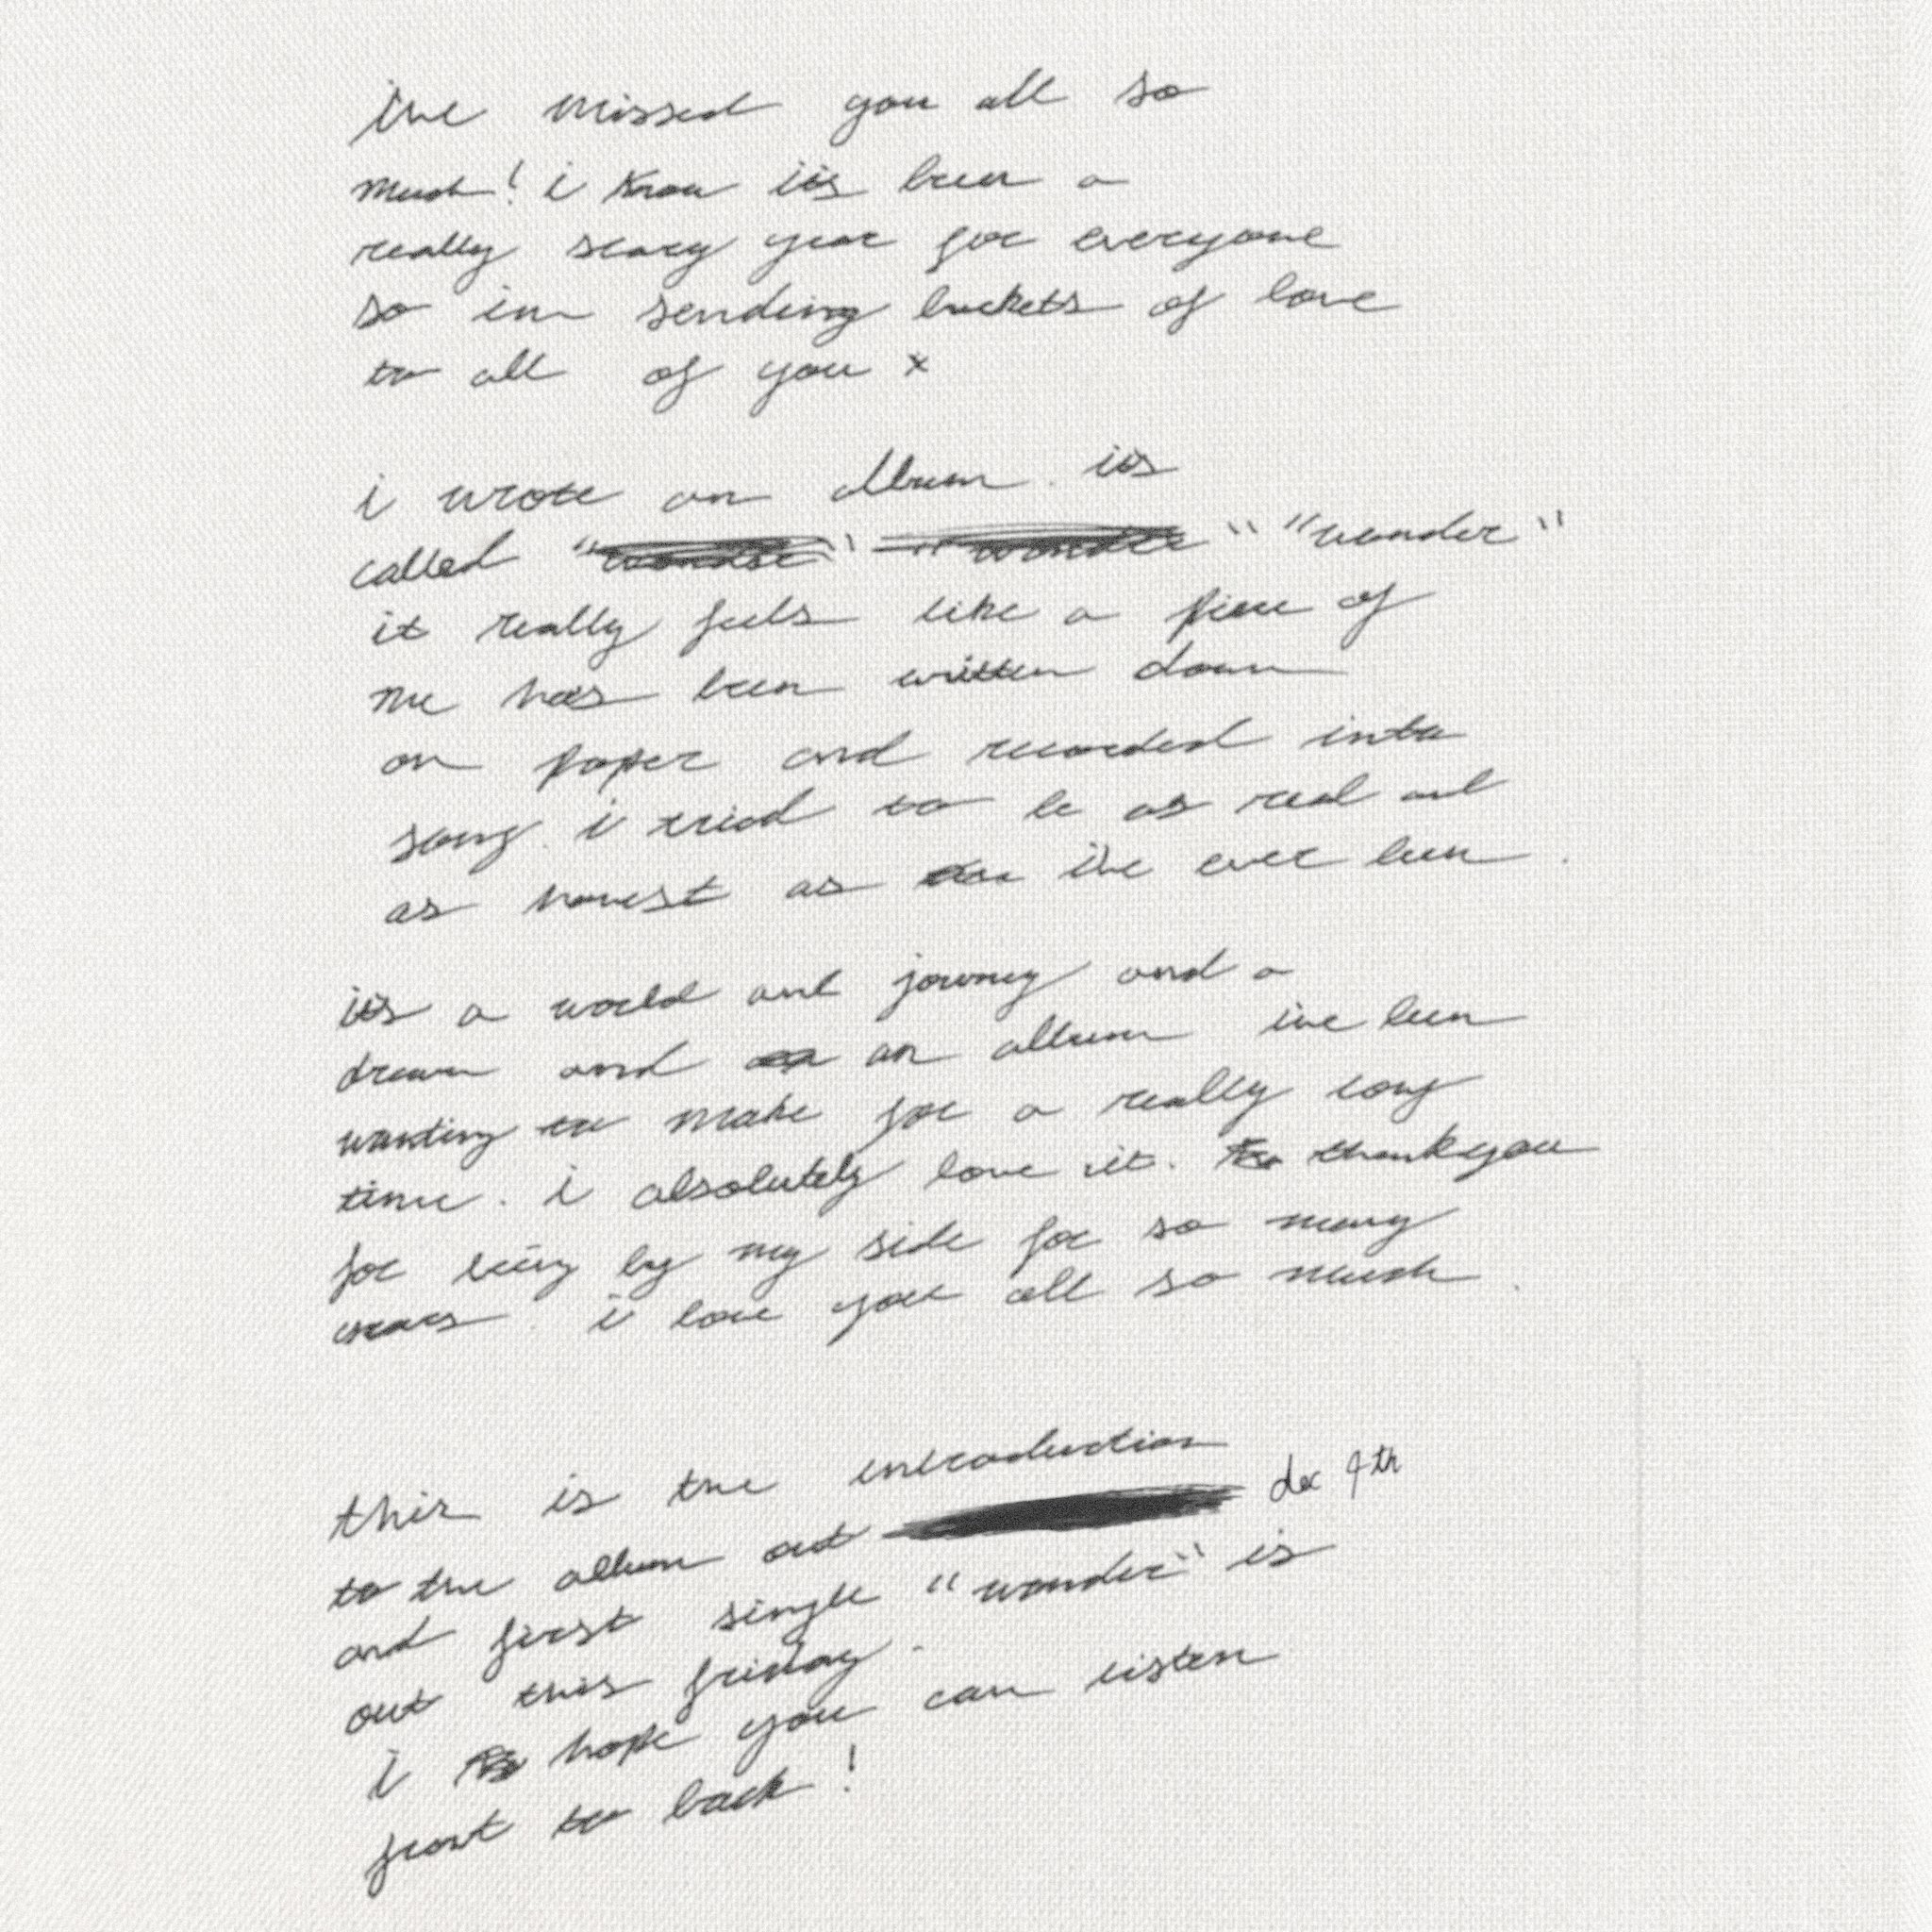 i've missed you all so
much! i know it's been a
really scary year for everyone
so im sending buckets of love
to all of you x
i wrote an album. it's
called "wonder" "wonder" "wonder"
it really feels like a piece of
me has been written down
on paper and recorded into
song. i tried to be as real and
as honest as i've ever been.
it's a world and journey and a
dream and an album ive been
wanting to make for a really long
time. i absolutely love it. thankyou
for being by my side for so many
years. i love you all so much.
this is the introduction
to the album out dec 4th
and first single "wonder" is
out this friday.
i hope you can listen
front to back!